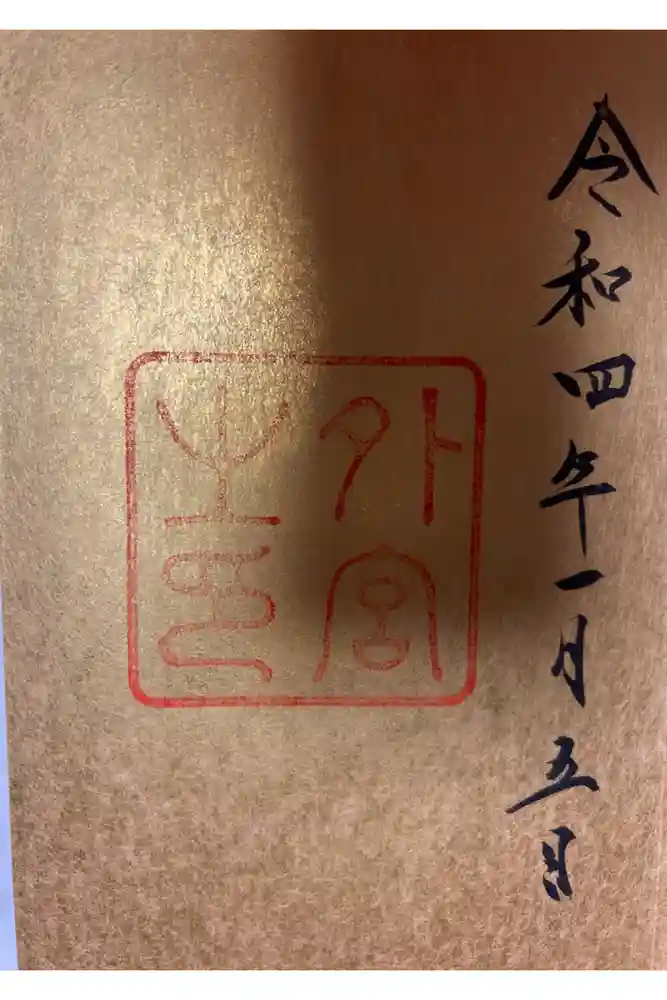 令和四年一月五日
外宮
之印